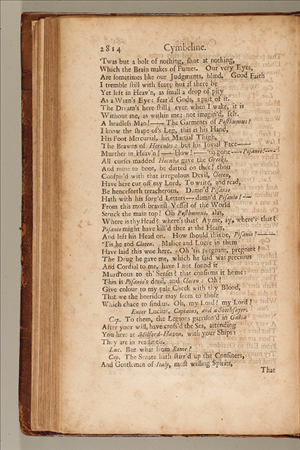 2814 Cymbeline.
'Twas but a bolt of nothing, shot at nothing,
Which the Brain makes of Fumes. Our very Eyes,
Are sometimes like our Judgments, blind. Good Faith
I tremble still with fear; but if there be
Yet left in Heav'n, as small a drop of pity
As a Wren's Eye: fear'd Gods, a part of it.
The Dream's here still; even when I wake, it is
Without me, as within me; not imagin'd, felt.
A headless Man! — The Garments of Posthumus!
I know the shape of's Leg, this is his Hand,
His Foot Mercurial, his Martial Thigh,
The Brawns of Hercules: but his Jovial Face—
Murther in Heav'n!— How!— 'tis gone—Pisanio—
All curses madded Hecuba gave the Greeks,
And mine to boot, be darted on thee; thou
Conspir'd with that irregulous Devil, Cloten,
Have here cut off my Lord. To write, and read,
Be henceforth treacherous. Damn'd Pisanio
Hath with his forg'd Letters—damn'd Pisanio!—
From this most bravest Vessel of the World
Struck the main top! Oh Posthumus, alas,
Where is thy Head? where's that? Ay me, ay, where's that?
Pisanio might have kill'd thee at the Heart,
And left his Head on. How should this be, Pisanio!—
'Tis he and Cloten. Malice and Lucre in them
Have laid this woe here. Oh 'tis pregnant, pregnant!
The Drug he gave me, which he said was precious
And Cordial to me, have I not found it
Murd'rous to th' Senses? that confirms it home:
This is Pisanio's deed, and Cloten: Oh!
Give colour to my pale Cheek with thy Blood,
That we the horrider may seem to those
Which chace to find us. Oh, my Lord! my Lord!
Enter Lucius, Captains, and a Soothsayer.
Cap. To them, the Legions garrison'd in Gallia
After your will, have cross'd the Sea, attending
You here at Milford-Haven, with your Ships:
They are in readiness.
Luc. But what from Rome?
Cap. The Senate hath stirr'd up the Confiners,
And Gentlemen of Italy, most willing Spirits,
That